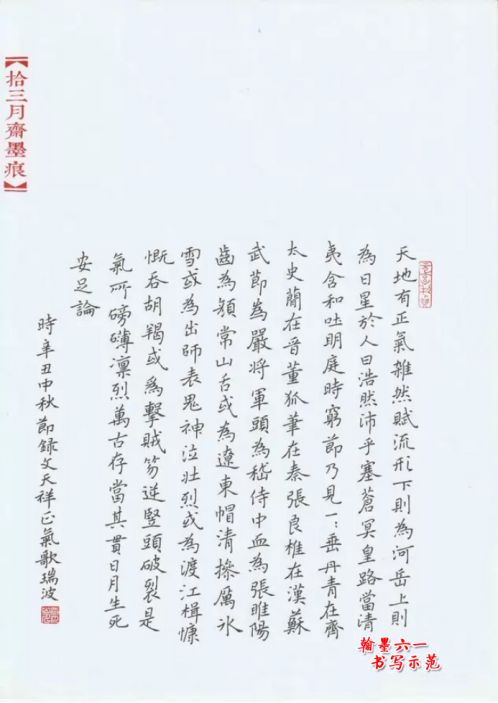 【拾三月齋墨痕】
天地有正氣雜然賦流形下則為河岳上則
為日星於人曰浩然沛乎塞蒼冥皇路當清
夷含和吐明庭時窮節乃見一：垂丹青在齊
太史簡在晉董狐筆在秦張良椎在漢蘇
武節為嚴將軍頭為嵇侍中血為張睢陽
齒為顏常山舌或為遼東帽清操厲冰
雪或為出師表鬼神泣壯烈或為渡江楫慷
慨吞胡羯或為擊賊笏逆豎頭破裂是
氣所磅礴凜烈萬古存當其貫日月生死
安足論
時辛丑中秋節錄文天祥正氣歌瑞波
翰墨六一
书写示范